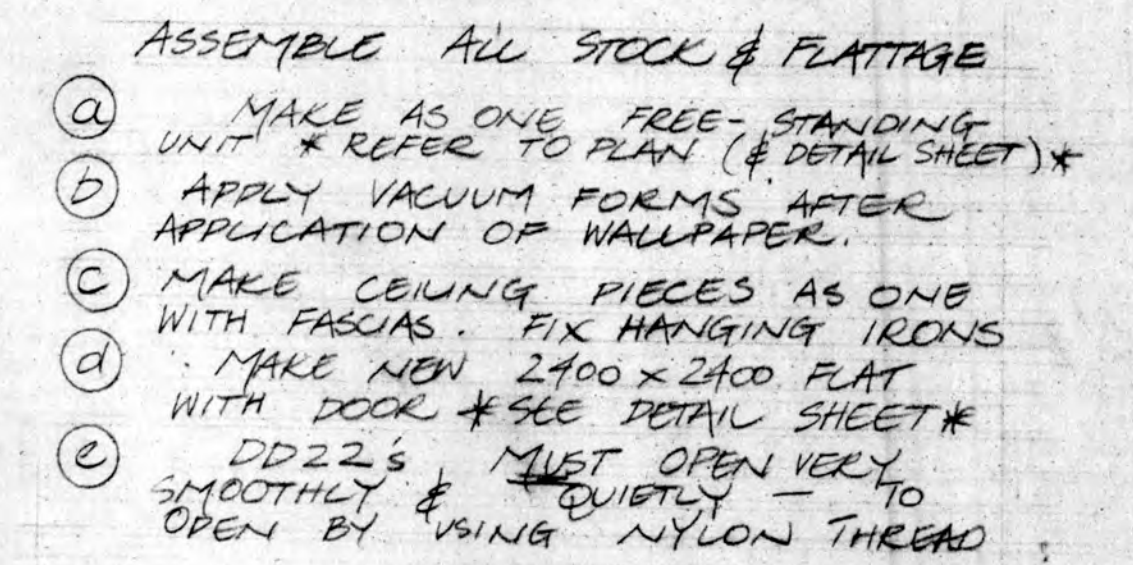 ASSEMBLE ALL STOCK & FLATTAGE
a MAKE AS ONE FREE-STANDING
UNIT * REFER TO PLAN (& DETAIL SHEET) *
b APPLY VACUUM FORMS AFTER
APPLICATION OF WALLPAPER.
c MAKE CEILING PIECES AS ONE
WITH FASCIAS. FIX HANGING IRONS
d MAKE NEW 2400 x 2400 FLAT
WITH DOOR * SEE DETAIL SHEET *
e DD22's MUST OPEN VERY
SMOOTHLY & QUIETLY — TO
OPEN BY USING NYLON THREAD